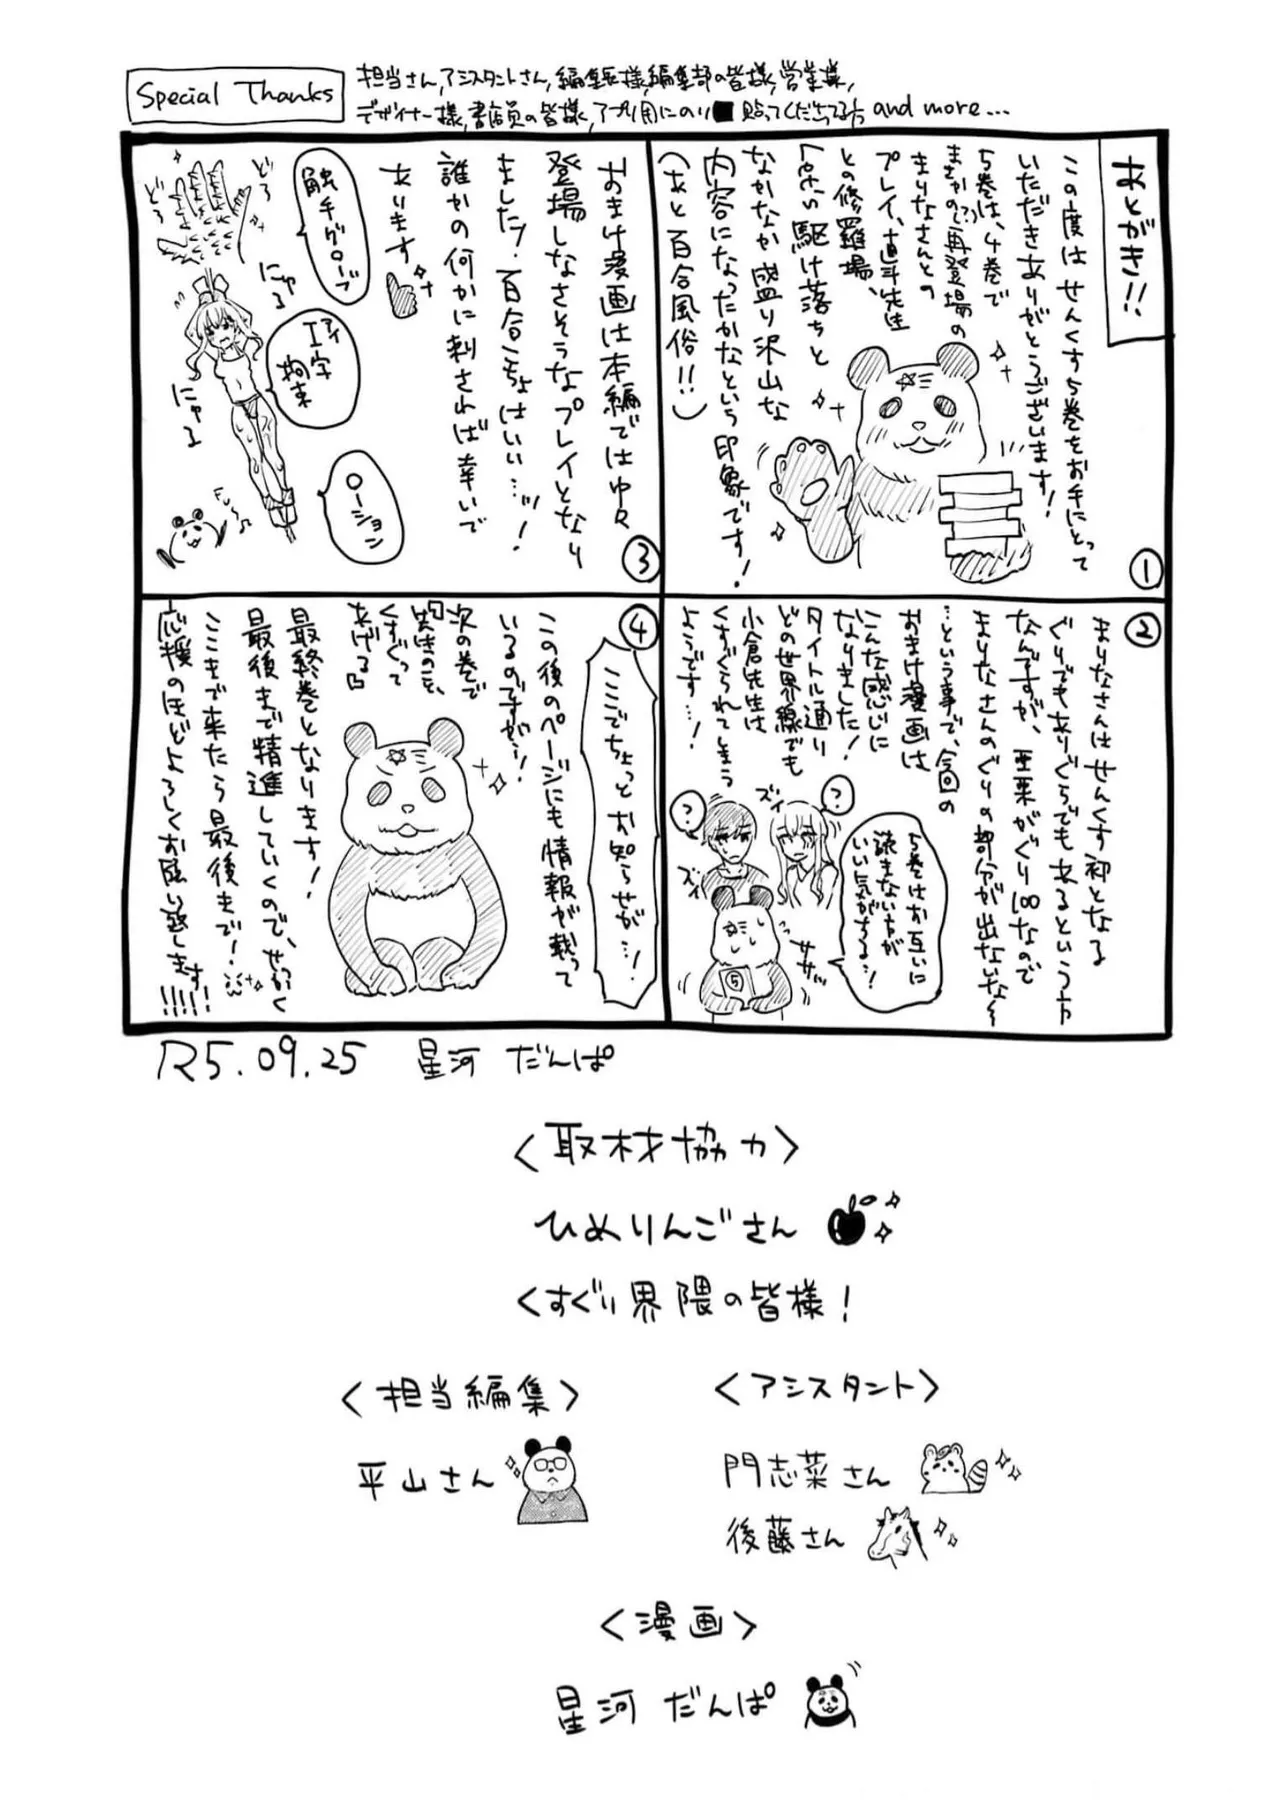 Special Thanks
担当さん,アシスタントさん,編集長様,編集部の皆様,営業様,
デザイナー様,書店員の皆様,アプリ用にのり■貼ってくださってる方 and more...
あとがき!!
この度はせんくす5巻をお手にとって
いただきありがとうございます!
5巻は、4巻で
まさかの(?)再登場の
まりなさんとの
プレイ、道斗先生
との修羅場、
駆け落ちと
なかなか盛り沢山な
内容になったかなという印象です!
(あと百合風俗!!)
①
②
まりなさんはせんくす初となる
ぐりでもありぐらでもあるという方
なんですが、亜栗がぐり100なので
まりなさんのぐりの部分が出ないな〜
…という事で、今回の
おまけ漫画は
こんな感じに
なりました!
タイトル通り
どの世界線でも
小倉先生は
くすぐられてしまう
ようです…!
?
?
ズイ
ズイ
5巻はお互いに
読まない方が
いい気がする…!
ササッ
⑤
③
おまけ漫画は本編では中々
登場しなさそうなプレイとなり
ました!百合こちょはいい…ッ!
誰かの何かに刺されば幸いで
あります
触手グローブ
どろ
どろ
にゅる
I字
アイ
拘束
にゅる
ローション
Fu
④
ここでちょっとお知らせが…!
この後のページにも情報が載って
いるのですが…!
次の巻で
『先生のこと、
くすぐって
あげる』
最終巻となります!
最後まで精進していくので、せっかく
ここまで来たら最後まで!
応援のほどよろしくお願い致します!!!!!
R5.09.25 星河 だんぱ
<取材協力>
ひめりんごさん
くすぐり界隈の皆様!
<担当編集>
平山さん
<アシスタント>
門志菜さん
後藤さん
<漫画>
星河 だんぱ